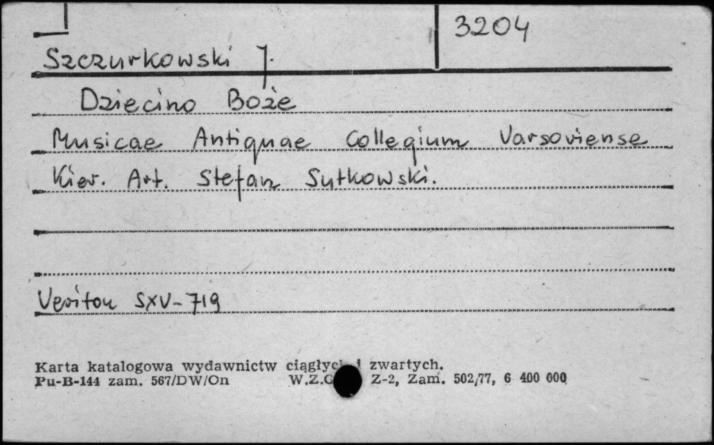 3204
Szczurkowski J.
Dziecino Boże
Musicae Antiquae Collegium Varsoviense
Kier. Art. Stefan Sutkowski.
Veriton SXV-719
Karta katalogowa wydawnictw ciągłych i zwartych.
Pu-B-144 zam. 567/DW/On W.Z.G. Z-2, Zam. 502/77, 6 400 000